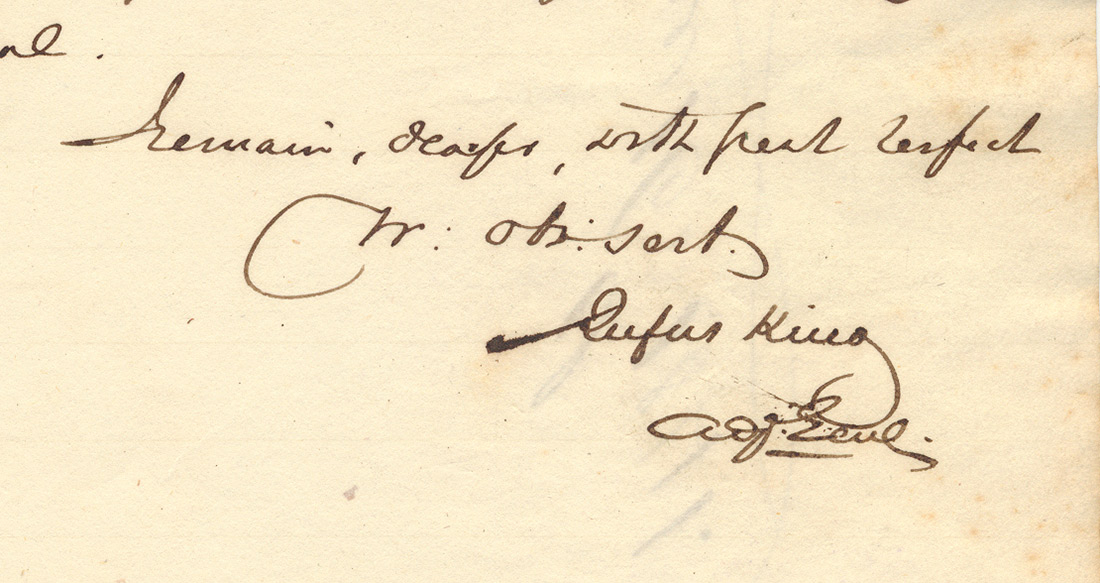 al.
Iremain, dear sir, with great respect
Yr: obt: servt.
Rufus King
Adjt. Genl.